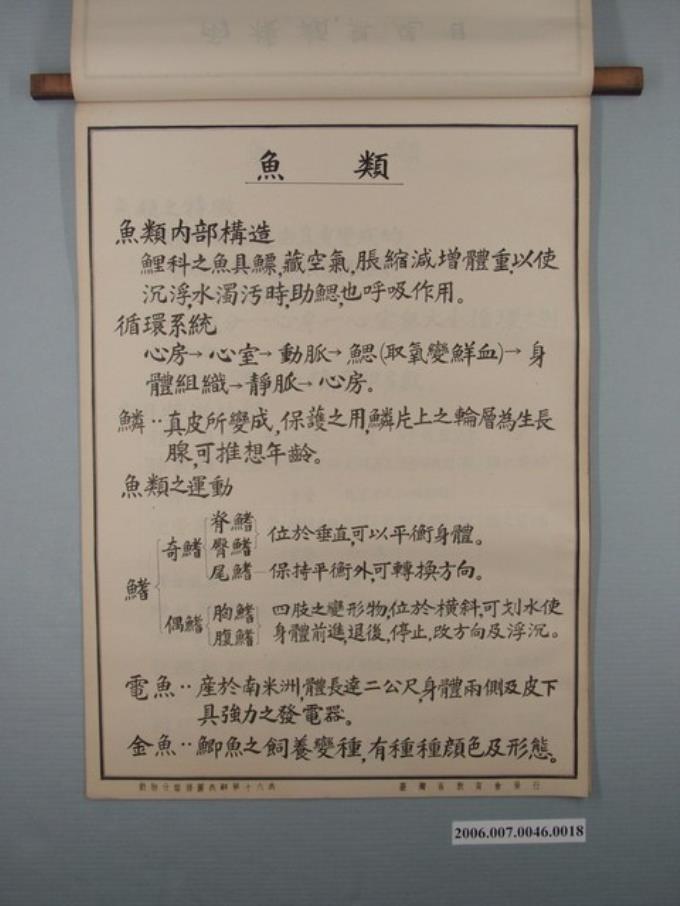 魚類
魚類內部構造
鯉科之魚具鰾,藏空氣,脹縮減增體重,以使
沉浮,水濁污時,助鰓,也呼吸作用。
循環系統
心房→心室→動脈→鰓(取氧變鮮血)→身
體組織→靜脈→心房。
鱗‥真皮所變成,保護之用,鱗片上之輪層為生長
腺,可推想年齡。
魚類之運動
鰭 奇鰭 脊鰭 臀鰭 位於垂直,可以平衡身體。
尾鰭—保持平衡外,可轉換方向。
偶鰭 胸鰭 腹鰭 四肢之變形物,位於橫斜,可划水使
身體前進,退後,停止,改方向及浮沉。
電魚‥產於南米洲,體長達二公尺,身體兩側及皮下
具強力之發電器。
金魚‥鯽魚之飼養變種,有種種顏色及形態。
臺灣省教育會發行
2006.007.0046.0018